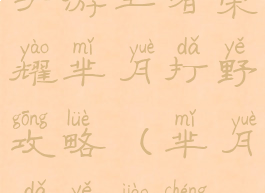 游王者荣
yào mǐ yuè dǎ yě
耀芈月打野
gōng lüè mǐ yuè
攻略(芈月
dǎ yě jiào chéng